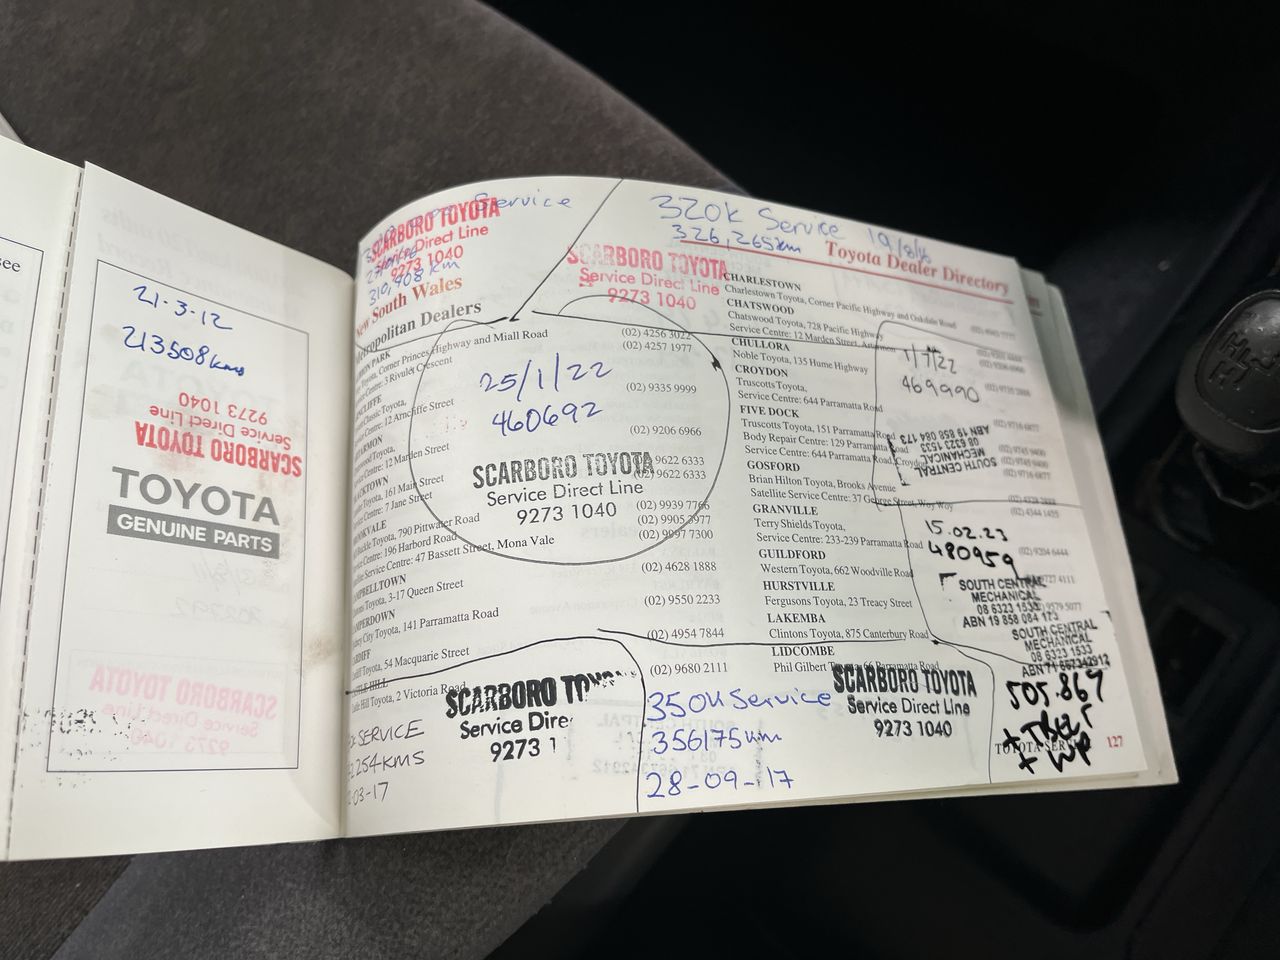 see
21-3-12
213508kms
SCARBORO TOYOTA
Service Direct Line
9273 1040
TOYOTA
GENUINE PARTS
SCARBORO TOYOTA
Service Direct Line
9273 1040
Service
SCARBORO TOYOTA
Service Direct Line
9273 1040
310,908km
New South Wales
Metropolitan Dealers
SCARBORO TOYOTA
Service Direct Line
9273 1040
320k Service 19/8/16
326,265km
Toyota Dealer Directory
Toyota, Corner Princes Highway and Miall Road
Centre: 3 Rivulet Crescent
Toyota,
Centre: 12 Arncliffe Street
Centre: 12 Marden Street
Toyota, 161 Main Street
Centre: 7 Jane Street
Toyota, 790 Pittwater Road
Centre: 196 Harbord Road
Service Centre: 47 Bassett Street, Mona Vale
CAMPBELLTOWN
Toyota, 3-17 Queen Street
CAMPERDOWN
City Toyota, 141 Parramatta Road
CARDIFF
Toyota, 54 Macquarie Street
CASTLE HILL
Castle Hill Toyota, 2 Victoria Road
(02) 4256 3022
(02) 4257 1977
(02) 9335 9999
(02) 9206 6966
(02) 9622 6333
(02) 9622 6333
(02) 9939 7766
(02) 9905 3977
(02) 9997 7300
(02) 4628 1888
(02) 9550 2233
(02) 4954 7844
(02) 9680 2111
25/1/22
460692
SCARBORO TOYOTA
Service Direct Line
9273 1040
SERVICE
254KMS
03-17
SCARBORO TO
Service Dire
9273 1
350K Service
356175km
28-09-17
SCARBORO TOYOTA
Service Direct Line
9273 1040
CHARLESTOWN
Charlestown Toyota, Corner Pacific Highway and Oakdale Road
CHATSWOOD
Chatswood Toyota, 728 Pacific Highway
Service Centre: 12 Marden Street, Artarmon
CHULLORA
Noble Toyota, 135 Hume Highway
CROYDON
Truscotts Toyota,
Service Centre: 644 Parramatta Road
FIVE DOCK
Truscotts Toyota, 151 Parramatta Road
Body Repair Centre: 129 Parramatta Road
Service Centre: 644 Parramatta Road, Croydon
GOSFORD
Brian Hilton Toyota, Brooks Avenue
Satellite Service Centre: 37 George Street, Woy Woy
GRANVILLE
Terry Shields Toyota,
Service Centre: 233-239 Parramatta Road
GUILDFORD
Western Toyota, 662 Woodville Road
HURSTVILLE
Fergusons Toyota, 23 Treacy Street
LAKEMBA
Clintons Toyota, 875 Canterbury Road
LIDCOMBE
Phil Gilbert Toyota, 66 Parramatta Road
1/7/22
469990
SOUTH CENTRAL
MECHANICAL
08 6323 1533
ABN 19 858 084 173
15.02.23
480959
SOUTH CENTRAL
MECHANICAL
08 6323 1533
ABN 19 858 084 173
SOUTH CENTRAL
MECHANICAL
08 6323 1533
ABN 71 667342912
505.867
127